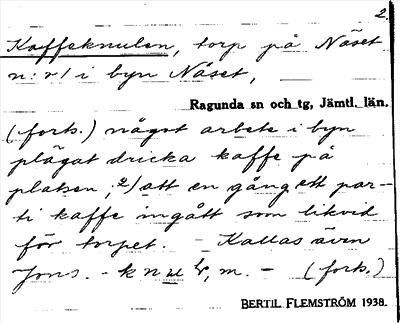 2.
Kaffeknulen, torp på Näset
n:r 1 i byn Näset,
Ragunda sn och tg, Jämtl. län.
(forts.) något arbete i byn
plägat dricka kaffe på
platsen; 2) att en gång ett par-
ti kaffe ingått som likvid
för torpet. – Kallas även
Jons. - knul, m. – (forts.)
BERTIL FLEMSTRÖM 1938.